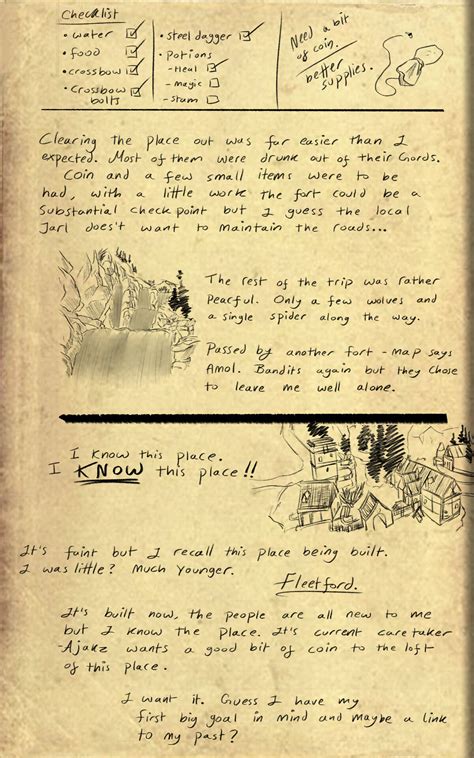 Checklist
• water
• food
• crossbow
• Crossbow
bolts
• steel dagger
• Potions
- Heal
- Magic
- Stam
Need a bit
of coin.
better
supplies.
Clearing the place out was far easier than I
expected. Most of them were drunk out of their Gords.
Coin and a few small items were to be
had, with a little work the fort could be a
Substantial check point but I guess the local
Jarl does't want to maintain the roads...
The rest of the trip was rather
Peacful. Only a few wolves and
a single spider along the way.
Passed by another fort - map says
Amol. Bandits again but they chose
to leave me well alone.
I know this place.
I KNOW this place!!
It's faint but I recall this place being built.
I was little? Much younger.
Fleetford.
It's built now, the people are all new to me
but I know the place. It's current care taker
- Ajakz wants a good bit of coin to the loft
of this place.
I want it. Guess I have my
first big goal in mind and maybe a link
to my past?